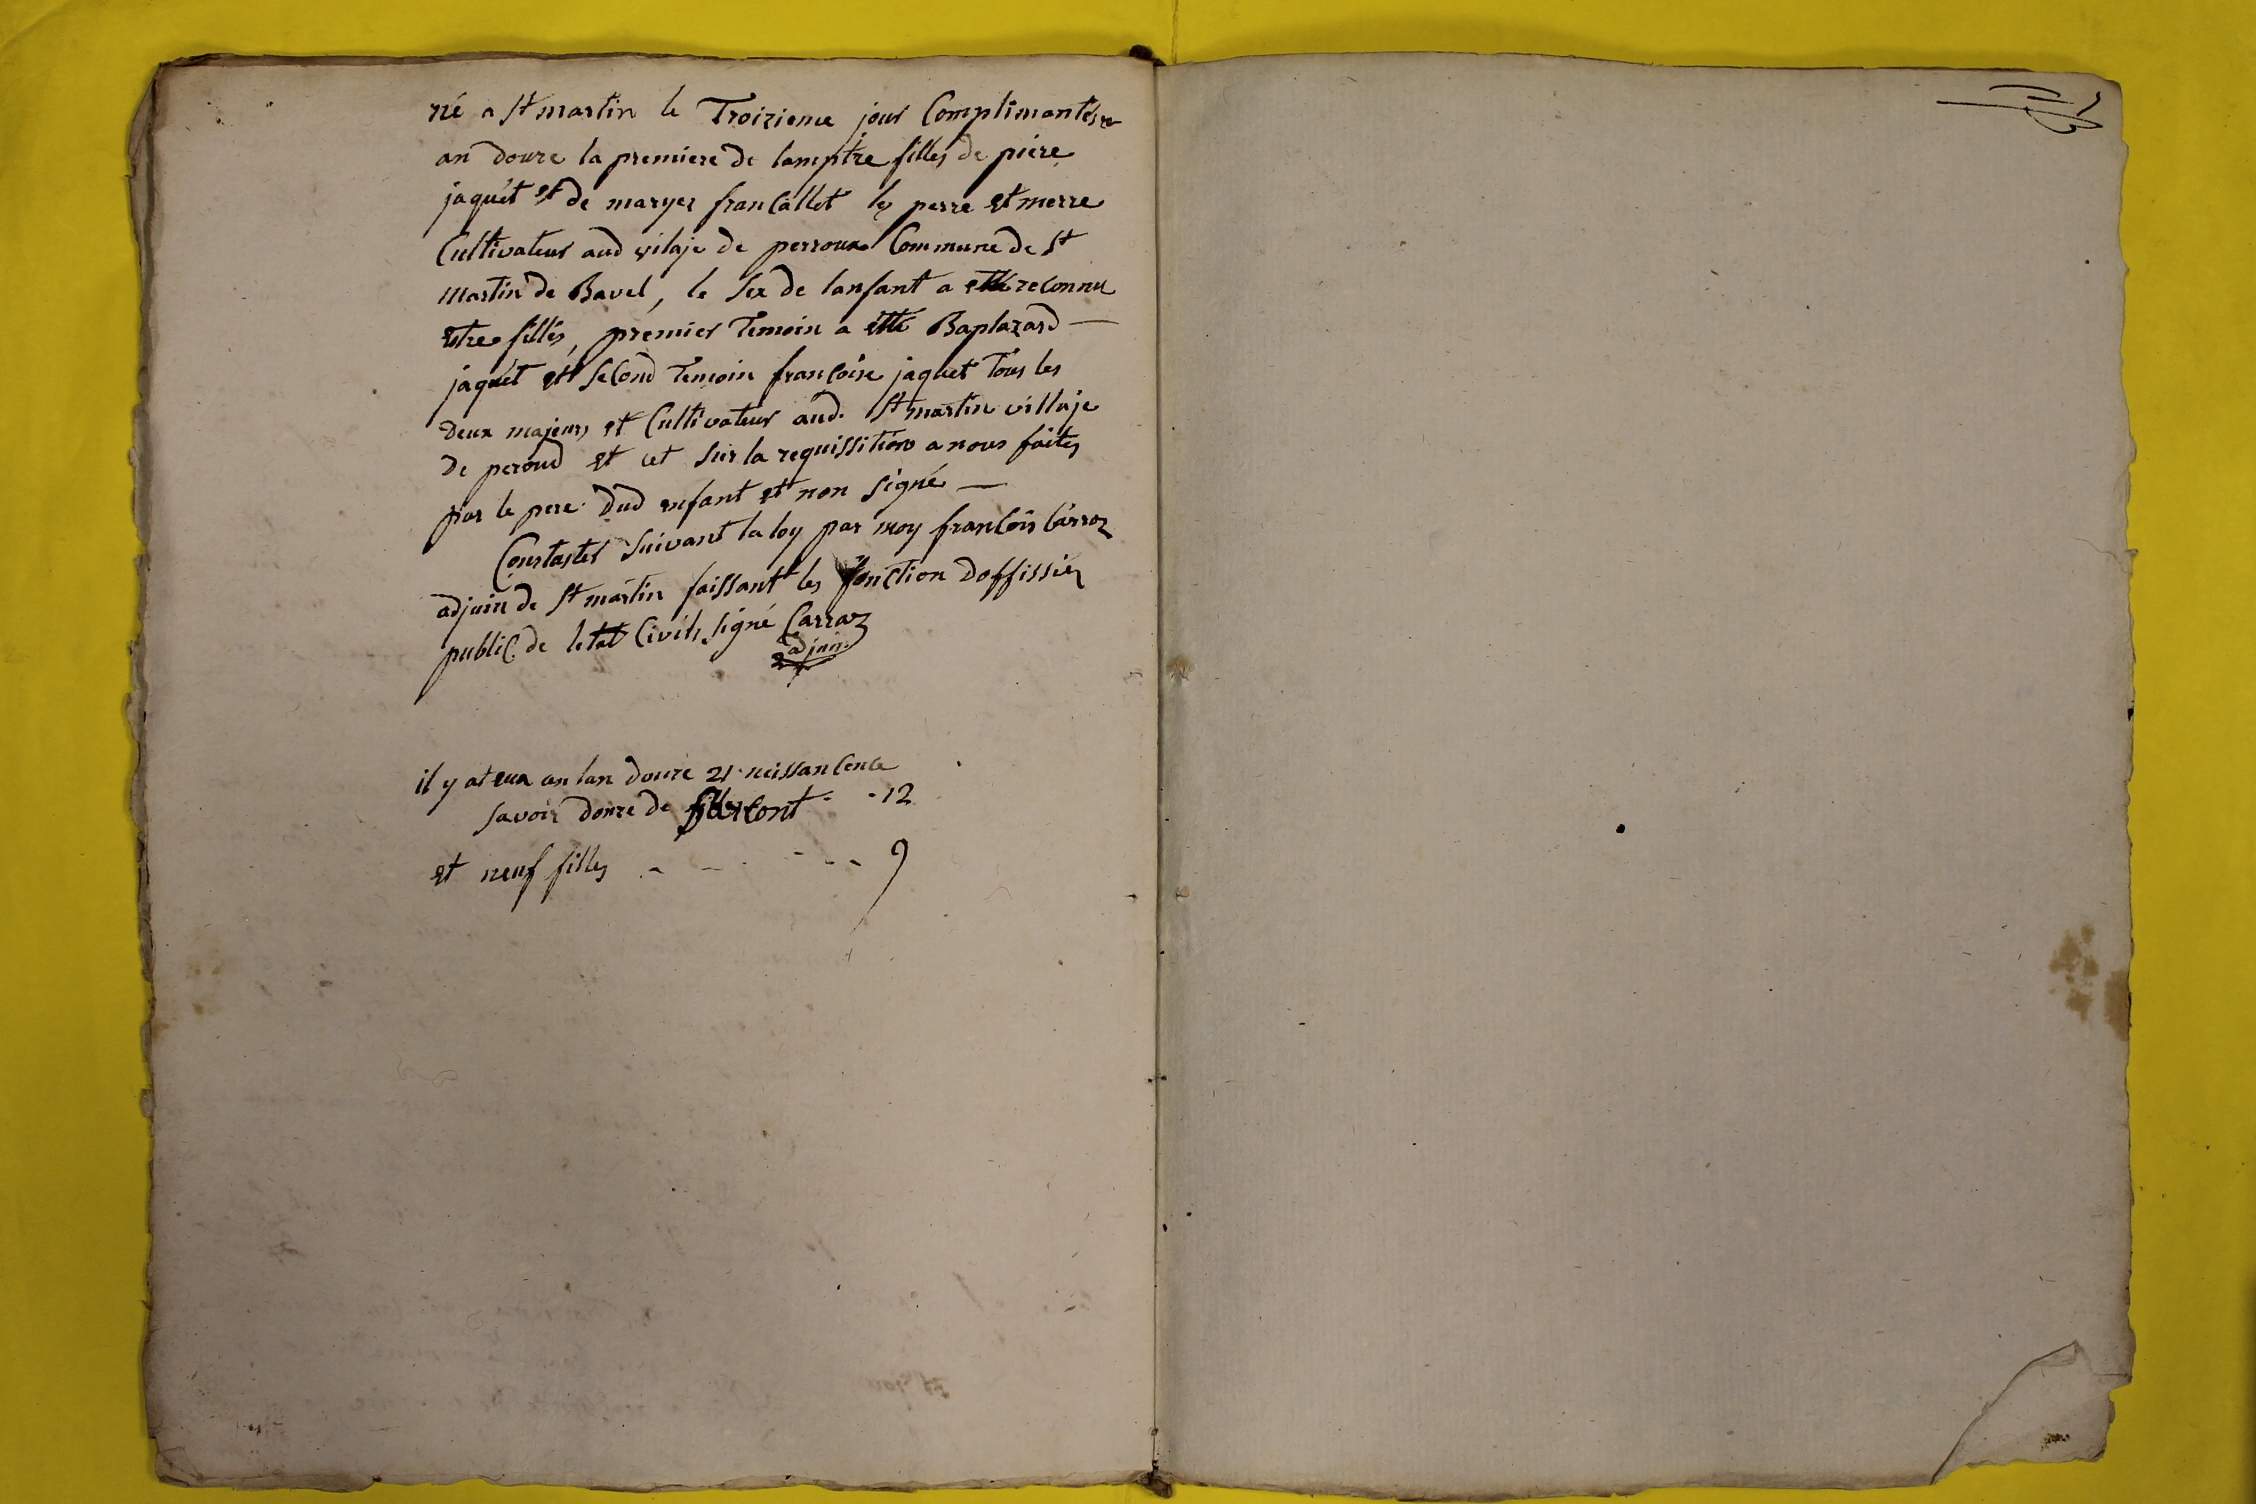 né a St martin le Troizieme jour Complimantere
an douze la premiere de lamptre filles de piere
jaquet et de maryer francallet les perre et merre
Cultivateur aud vilaje de perroux Commune de St
martin de Bavel, le sex de lanfant a etté reconnu
estre filles, premier Temoin a etté Baptazard
jaquet ett second Temoin francoise jaquet Tous les
deux majeurs et Cultivateur aud. St martin villaje
de peroud et cet sur la requissition a nous faites
par le pere dud enfant et non signé
Constatter suivant la loy par moy francois Carraz
adjuin de St martin faissant les fonction doffissier
public de letat Civils signé Carraz
adjuin
il y at eux an lan douze 21 neissancence
savoir douze de - - 12
et neuf filles - - - - - 9